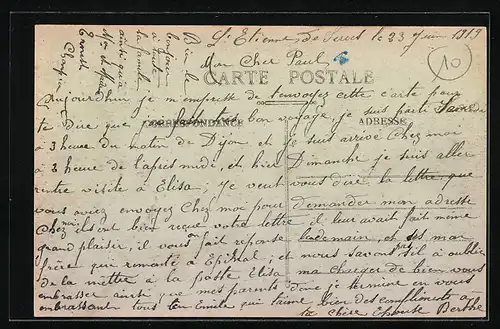 St Etienne de Tines le 23 Juin 1919
Mon Cher Paul
10
CARTE POSTALE
CORRESPONDANCE
ADRESSE
Aujourd'hui je m'empresse de t'envoyez cette carte pour
te dire que bon voyage, je suis parti Samedi
à 3 heure du matin de Dijon et je suis arrivé chez moi
à 3 heure de l'après midi, et hier Dimanche je suis aller
rentre visite à Elisa; je veut vous dire la lettre que
vous aviez envoyez chez moi pour demander mon adresse
chez moi ils ont bien reçue votre lettre, il leur avait fait même
grand plaisir, il vous on fait reponse lendemain, et ses mon
frère qui remonté à Epinal; et nous savons pas s'il a oublier
de la mettre à la poste Elisa ma charger de bien vous
embrasser ainsi que mes parents donc je termine en vous
embrassant tous ton Emile qui t'aime bien des compliments à
ta chère Epouse Berthe
Bien le
bonjour
à toute
ta famille
ainsi qu'à
Mr et Mme